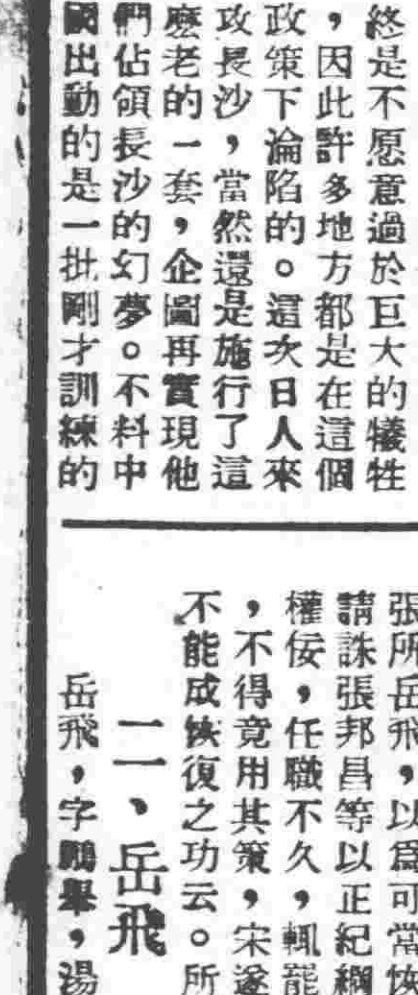 終是不愿意過於巨大的犧牲
，因此許多地方都是在這個
政策下淪陷的。這次日人來
攻長沙，當然還是施行了這
麽老的一套，企圖再實現他
們佔領長沙的幻夢。不料中
國出動的是一批剛才訓練的
張所岳飛，以爲可當恢
請誅張邦昌等以正紀綱
權佞，任職不久，輒罷
，不得竟用其策，宋遂
不能成恢復之功云。所
二、岳飛
岳飛，字鵬舉，湯